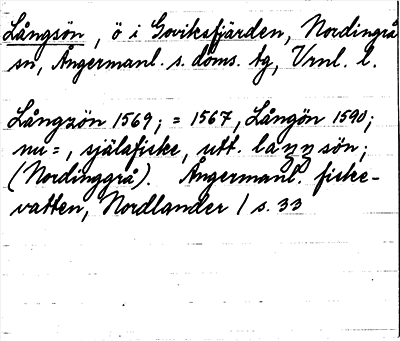 Långsön, ö i Goviksfjärden, Nordingrå
sn, Ångermanl. s. doms. tg, Vrnl. l.
Långzön 1569; = 1567, Långön 1590;
nu =, själafiske, utt. laŋŋsön;
(Nordinggrå). Ångermanl. fiske-
vatten, Nordlander 1 s. 33